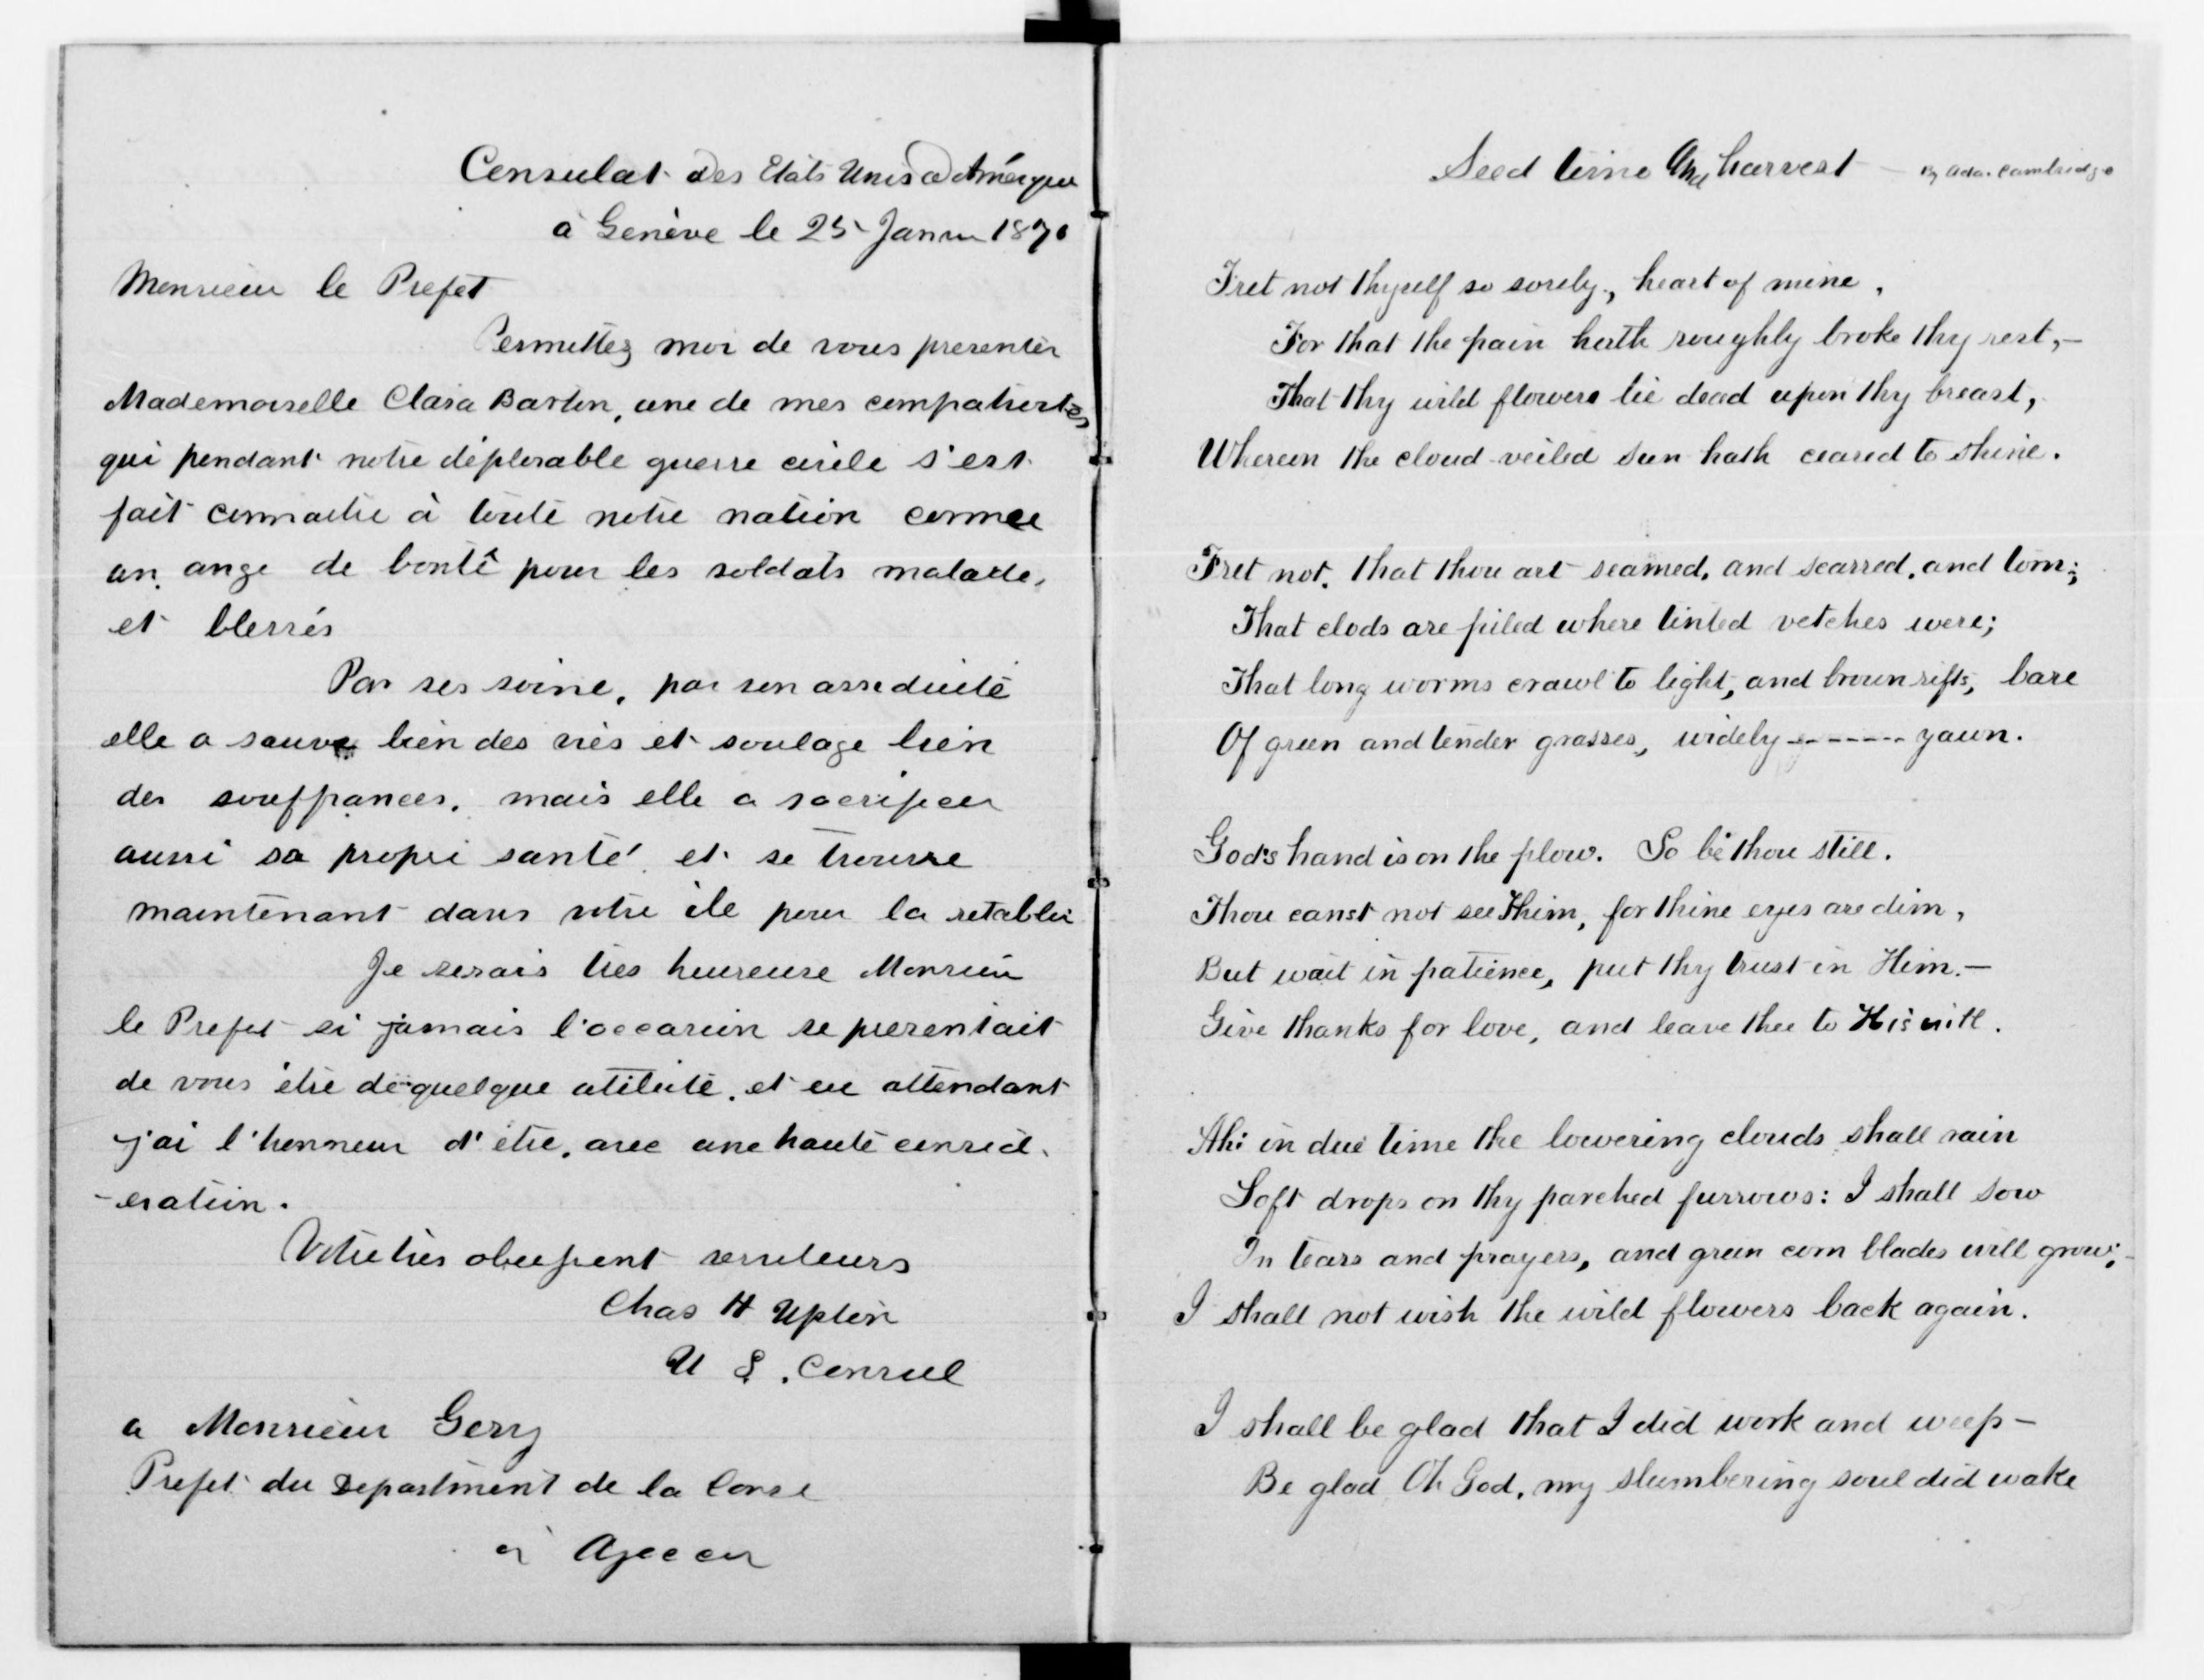 Consulat des Etats Unis d'Amérique
à Genève le 25 Janvier 1870
Monsieur le Prefet
Permettez moi de vous presenter
Mademoiselle Clara Barton, une de mes compatriotes
qui pendant notre déplorable guerre civile s'est
fait connaitre à toute notre nation comme
un ange de bonté pour les soldats malades
et blessés
Par ses soins, par son assiduité
elle a sauvé bien des vies et soulage bien
des souffrances, mais elle a sacrifier
aussi sa propre santé et se trouve
maintenant dans votre ile pour la retablir
Je serais tres heureuse Monsieur
le Prefet si jamais l'occasion se presentait
de vous être de quelque utilité, et en attendant
j'ai l'honneur d'être, avec une haute consid-
-eration.
Votre tres obeissent serviteurs
Chas H Upton
U S. Consul
a Monsieur Gery
Prefet du Department de la Corse
à
Seed time And harvest — By Ada. Cambridge
Fret not thyself so sorely, heart of mine,
For that the pain hath roughly broke thy rest,—
That thy wild flowers lie dead upon thy breast,
Whereon the cloud-veiled sun hath ceased to shine.
Fret not, that thou art seamed, and scarred, and torn;
That clods are piled where tinted vetches were;
That long worms crawl to light, and brown rifts, bare
Of green and tender grasses, widely ------- yawn.
God's hand is on the plow. So be thou still.
Thou canst not see Him, for thine eyes are dim,
But wait in patience, put thy trust in Him.—
Give thanks for love, and leave thee to His will.
Ah! in due time the lowering clouds shall rain
Soft drops on thy parched furrows: I shall sow
In tears and prayers, and green corn blades will grow;—
I shall not wish the wild flowers back again.
I shall be glad that I did work and weep —
Be glad Oh God, my slumbering soul did wake